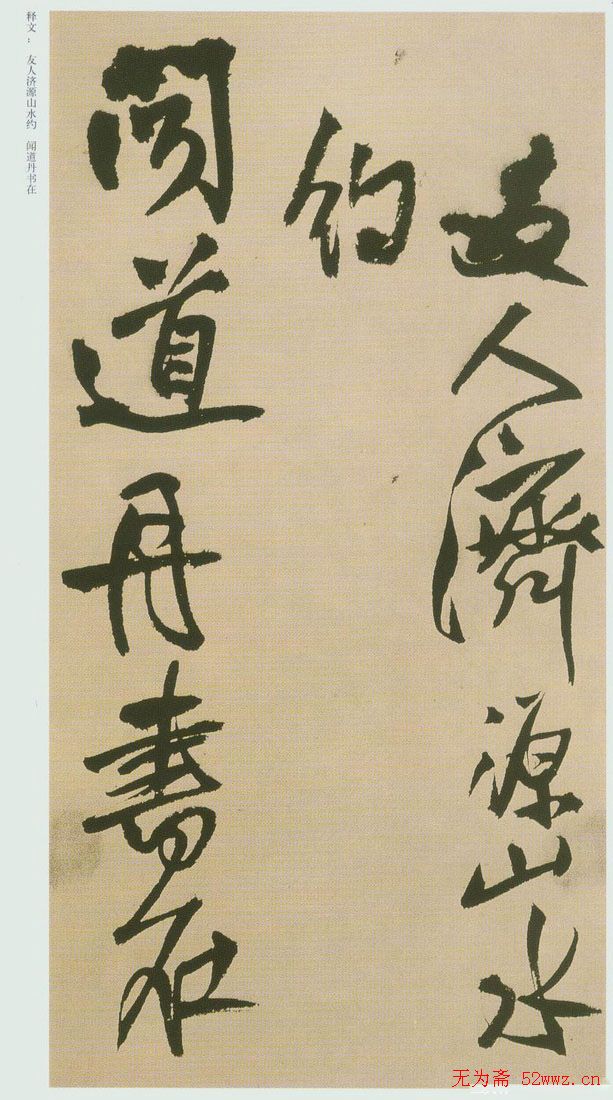 友人濟源山水
約
聞道丹書在
释文：　友人济源山水约　闻道丹书在
无为斋 52wwz.cn